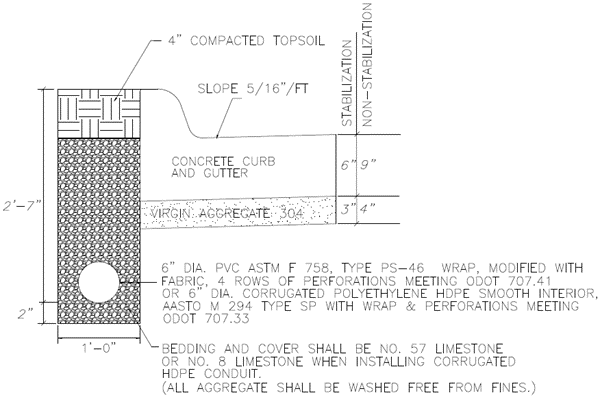 4" COMPACTED TOPSOIL
SLOPE 5/16"/FT
STABILIZATION
NON-STABILIZATION
CONCRETE CURB
AND GUTTER
6" 9"
VIRGIN AGGREGATE 304
3" 4"
2'-7"
6" DIA. PVC ASTM F 758, TYPE PS-46 WRAP, MODIFIED WITH
FABRIC, 4 ROWS OF PERFORATIONS MEETING ODOT 707.41
OR 6" DIA. CORRUGATED POLYETHYLENE HDPE SMOOTH INTERIOR,
AASTO M 294 TYPE SP WITH WRAP & PERFORATIONS MEETING
ODOT 707.33
2"
1'-0"
BEDDING AND COVER SHALL BE NO. 57 LIMESTONE
OR NO. 8 LIMESTONE WHEN INSTALLING CORRUGATED
HDPE CONDUIT.
(ALL AGGREGATE SHALL BE WASHED FREE FROM FINES.)